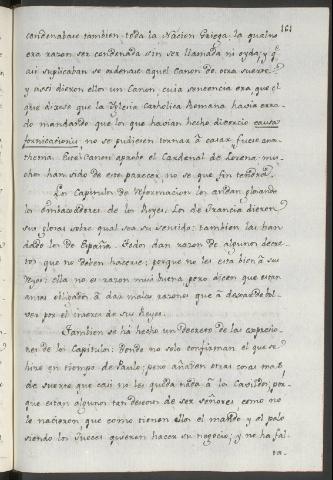 161
condenabase tambien toda la Nacion Griega, la qual no
era razon ser condenada sin ser llamada ni oyda; y
asi suplicaban se ordenase aquel Canon de otra suerte:
y assi dieron ellos un Canon, cuia sentencia era que el
que dixese que la Yglesia Catholica Romana havia erra-
do mandando que los que havian hecho divorcio causa
fornicationis, no se pudiesen tornar á casar, fuese ana-
thema. Este Canon aprobó el Cardenal de Lorena: mu-
chos han sido de este parecer, no se que fin tendrá.
Los Capitulos de Reformacion los andan glosando
los Embaxadores de los Reyes. Los de Francia dieron
sus glosas sobre qual sea su sentido: tambien las han
dado los de España. Todos dan razon de algunos decre-
tos que no deben hacerse; porque no les esta bien á su
Reyes: ella no es razon mui buena, pero dicen que estan
antes obligados á dar malas razones que á dexar de bol-
ver por el interes de sus Reyes.
Tambien se ha hecho un Decreto de las exempcio-
nes de los Capitulos: donde no solo confirman el que se
hizo en tiempo de Paulo; pero añaden otras cosas mas,
de suerte que casi no les queda nada á los Cavildos; por-
que estan algunos tan deseosos de ser señores como no
lo nacieron, que como tienen ellos el mando y el palo
siendo los Jueces quieren hacer su negocio; y no ha fal-
ta-